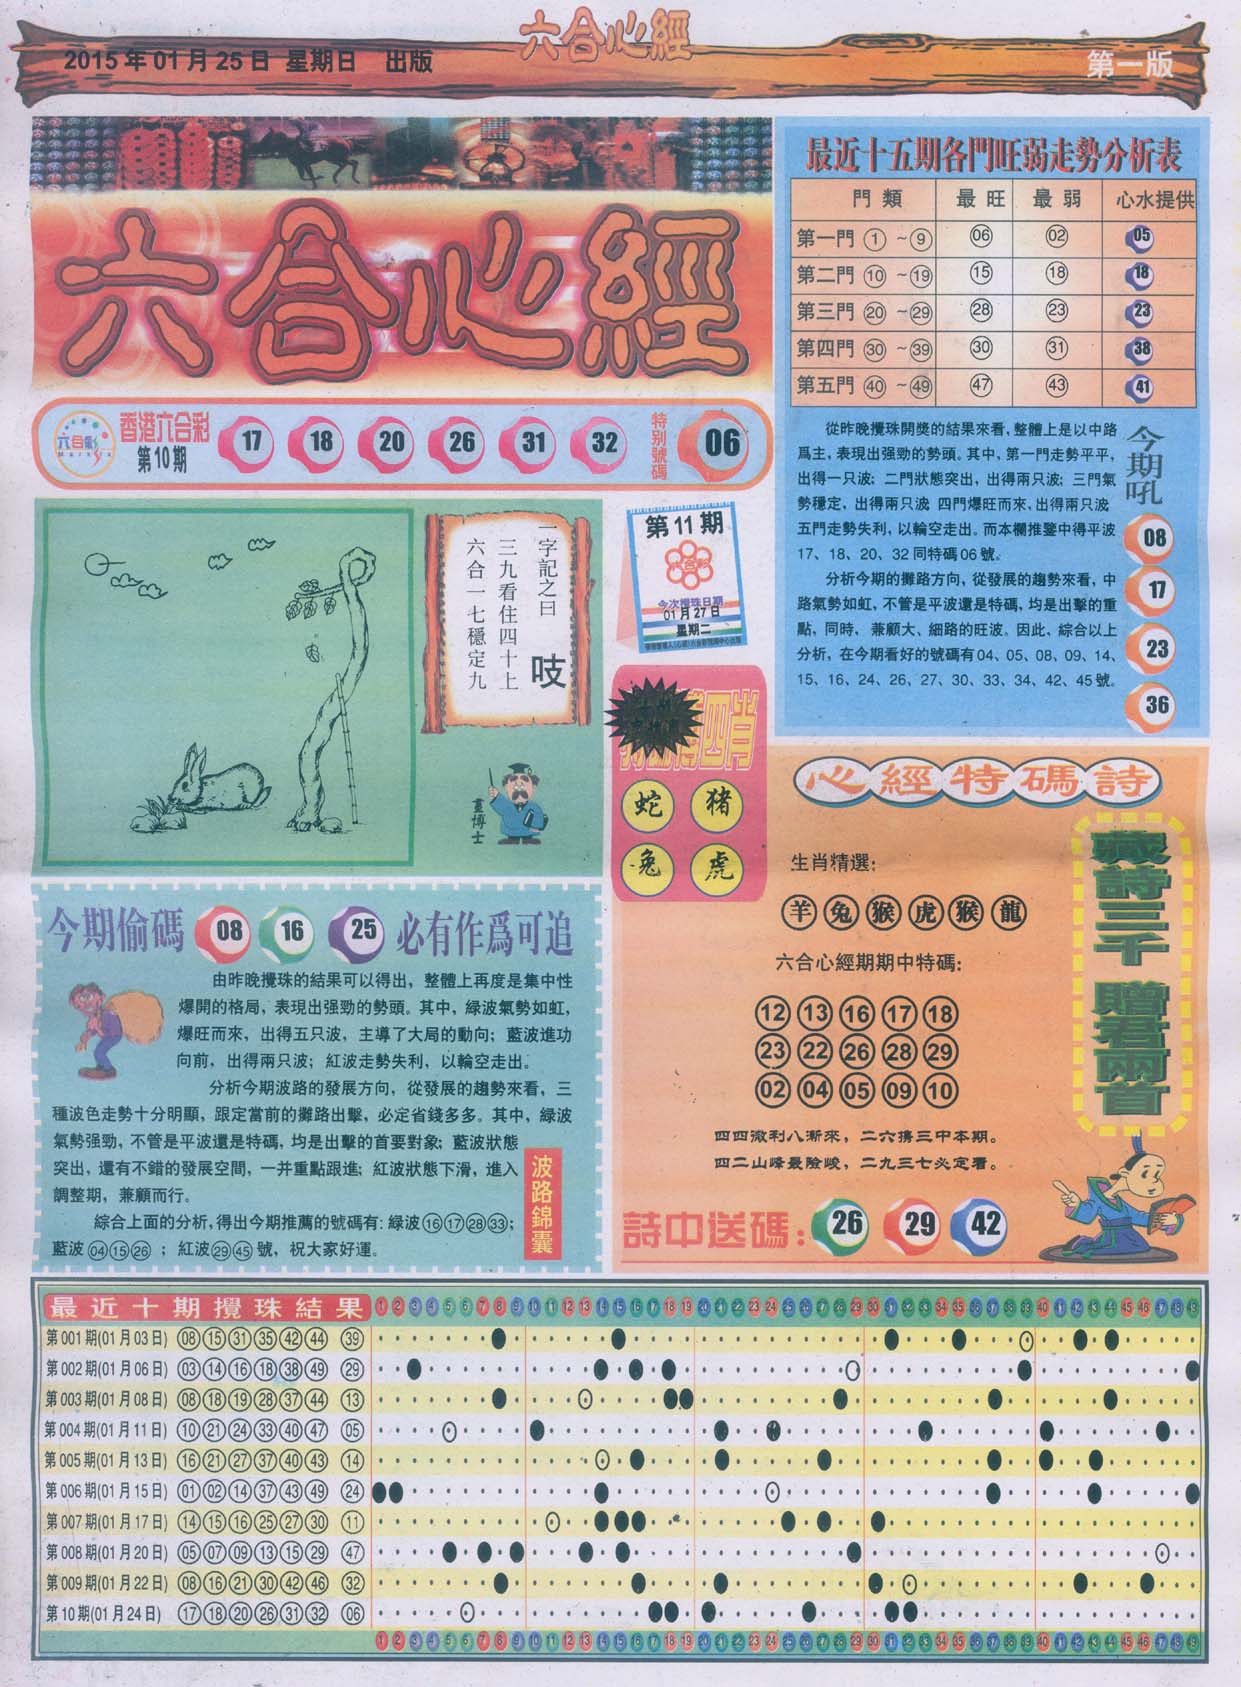 六合心經
2015年01月25日 星期日 出版
第一版
六合心經
六合彩
香港六合彩
第10期
17 18 20 26 31 32
特别號碼
06
最近十五期各門旺弱走勢分析表
門類 最旺 最弱 心水提供
第一門 ①~⑨ 06 02 05
第二門 ⑩~⑲ 15 18 18
第三門 ⑳~㉙ 28 23 23
第四門 ㉚~㊴ 30 31 38
第五門 ㊵~㊾ 47 43 41
從昨晚攪珠開獎的結果來看,整體上是以中路
爲主,表現出强勁的勢頭。其中,第一門走勢平平,
出得一只波;二門狀態突出,出得兩只波;三門氣
勢穩定,出得兩只波;四門爆旺而來,出得兩只波;
五門走勢失利,以輪空走出。而本欄推鑒中得平波
17、18、20、32同特碼06號。
分析今期的攤路方向,從發展的趨勢來看,中
路氣勢如虹,不管是平波還是特碼,均是出擊的重
點,同時,兼顧大、細路的旺波。因此,綜合以上
分析,在今期看好的號碼有04、05、08、09、14、
15、16、24、26、27、30、33、34、42、45號。
今期吼
08
17
23
36
一字記之曰 吱
三九看住四十上
六合一七穩定九
畫博士
第11期
六合彩
今次攪珠日期
01月27日
星期二
四肖
蛇 猪
兔 虎
今期偷碼 08 16 25 必有作爲可追
由昨晚攪珠的結果可以得出,整體上再度是集中性
爆開的格局,表現出强勁的勢頭。其中,緑波氣勢如虹,
爆旺而來,出得五只波,主導了大局的動向;藍波進功
向前,出得兩只波;紅波走勢失利,以輪空走出。
分析今期波路的發展方向,從發展的趨勢來看,三
種波色走勢十分明顯,跟定當前的攤路出擊,必定省錢多多。其中,緑波
氣勢强勁,不管是平波還是特碼,均是出擊的首要對象;藍波狀態
突出,還有不錯的發展空間,一并重點跟進;紅波狀態下滑,進入
調整期,兼顧而行。
綜合上面的分析,得出今期推薦的號碼有:緑波⑯⑰㉘㉝;
藍波04⑮㉖;紅波㉙㊺號,祝大家好運。
波路錦囊
心經特碼詩
生肖精選:
羊 兔 猴 虎 猴 龍
六合心經期期中特碼:
12 13 16 17 18
23 22 26 28 29
02 04 05 09 10
四四微利八漸來,二六携三中本期。
四二山峰最險峻,二九三七必定看。
藏詩三千 贈君兩首
詩中送碼: 26 29 42
最近十期攪珠結果 1 2 3 4 5 6 7 8 9 10 11 12 13 14 15 16 17 18 19 20 21 22 23 24 25 26 27 28 29 30 31 32 33 34 35 36 37 38 39 40 41 42 43 44 45 46 47 48 49
第001期(01月03日) 08 15 31 35 42 44 39
第002期(01月06日) 03 14 16 18 38 49 29
第003期(01月08日) 08 18 19 28 37 44 13
第004期(01月11日) 10 21 24 33 40 47 05
第005期(01月13日) 16 21 27 37 40 43 14
第006期(01月15日) 01 02 14 37 43 49 24
第007期(01月17日) 14 15 16 25 27 30 11
第008期(01月20日) 05 07 09 13 15 29 47
第009期(01月22日) 08 16 21 30 42 46 32
第10期(01月24日) 17 18 20 26 31 32 06
1 2 3 4 5 6 7 8 9 10 11 12 13 14 15 16 17 18 19 20 21 22 23 24 25 26 27 28 29 30 31 32 33 34 35 36 37 38 39 40 41 42 43 44 45 46 47 48 49